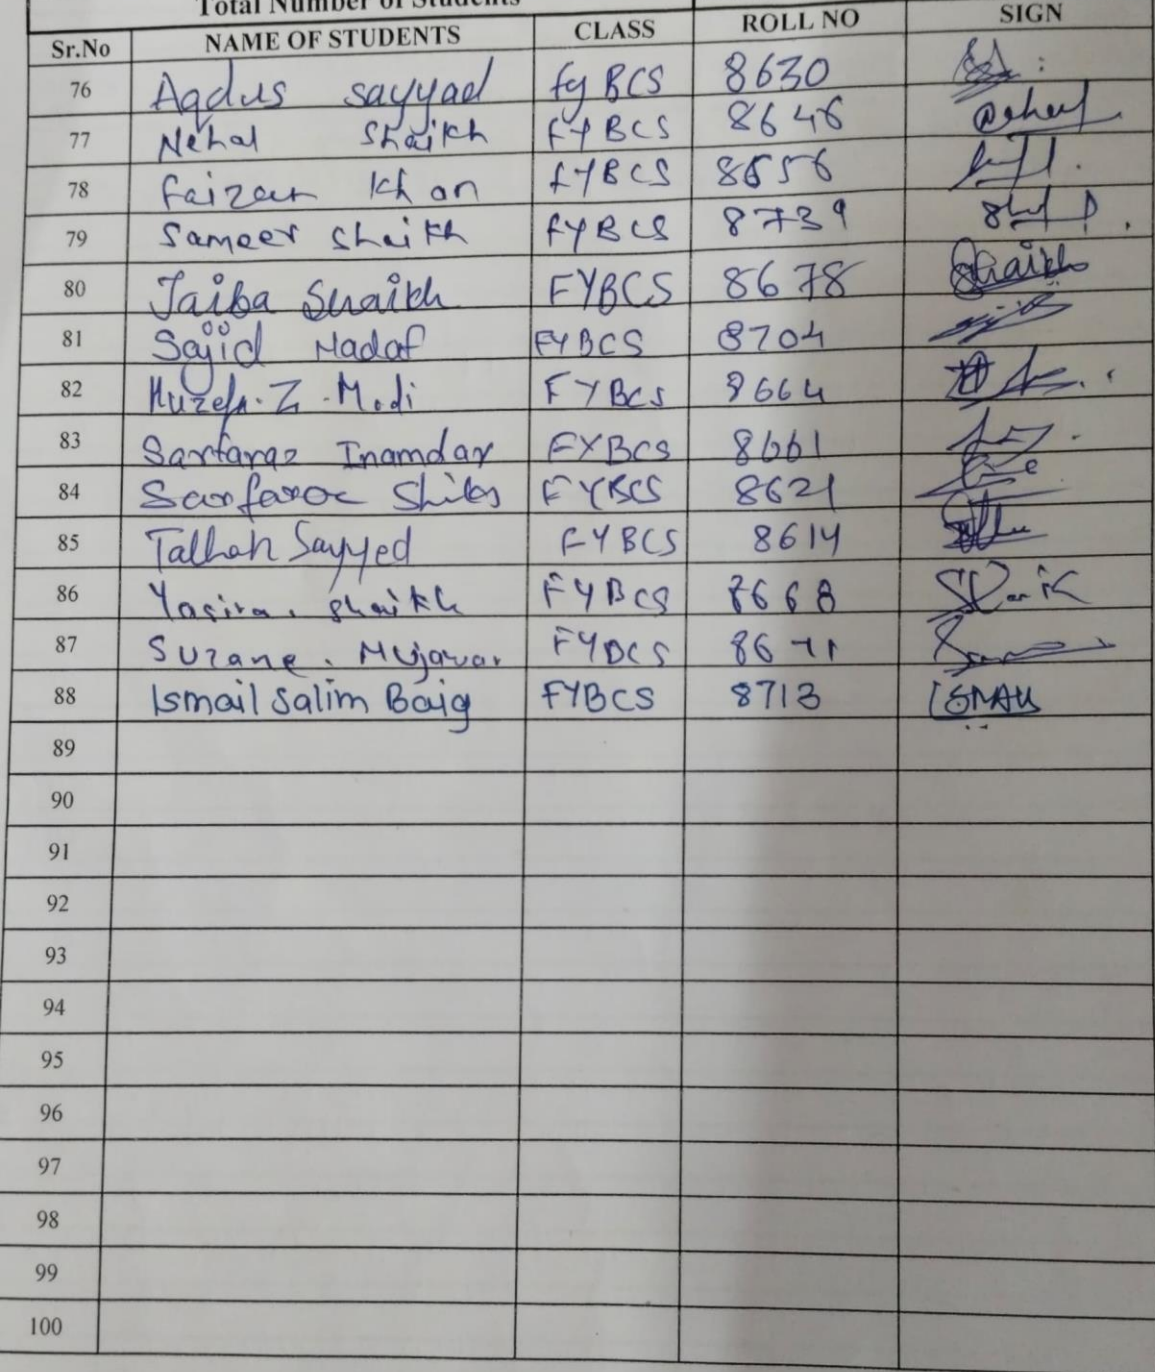 Total Number of Students
Sr.No NAME OF STUDENTS CLASS ROLL NO SIGN
76 Aqdus sayyad fyBCS 8630
77 Nehal Shaikh FYBCS 8646
78 faizan Khan fYBCS 8656
79 Sameer Shaikh fYBCS 8739
80 Jaiba Shaikh FYBCS 8678 Shaikh
81 Sajid Madaf FYBCS 8704
82 Huzefa. Z. Modi FYBCS 8664
83 Sarfaraz Inamdar FYBCS 8661
84 FYBCS 8621
85 Talhah Sayyed FYBCS 8614
86 Yasira. Shaikh FYBCS 8668
87 Suzane. Mujawar FYBCS 8671
88 Ismail Salim Baig FYBCS 8713 ISMAIL
89
90
91
92
93
94
95
96
97
98
99
100